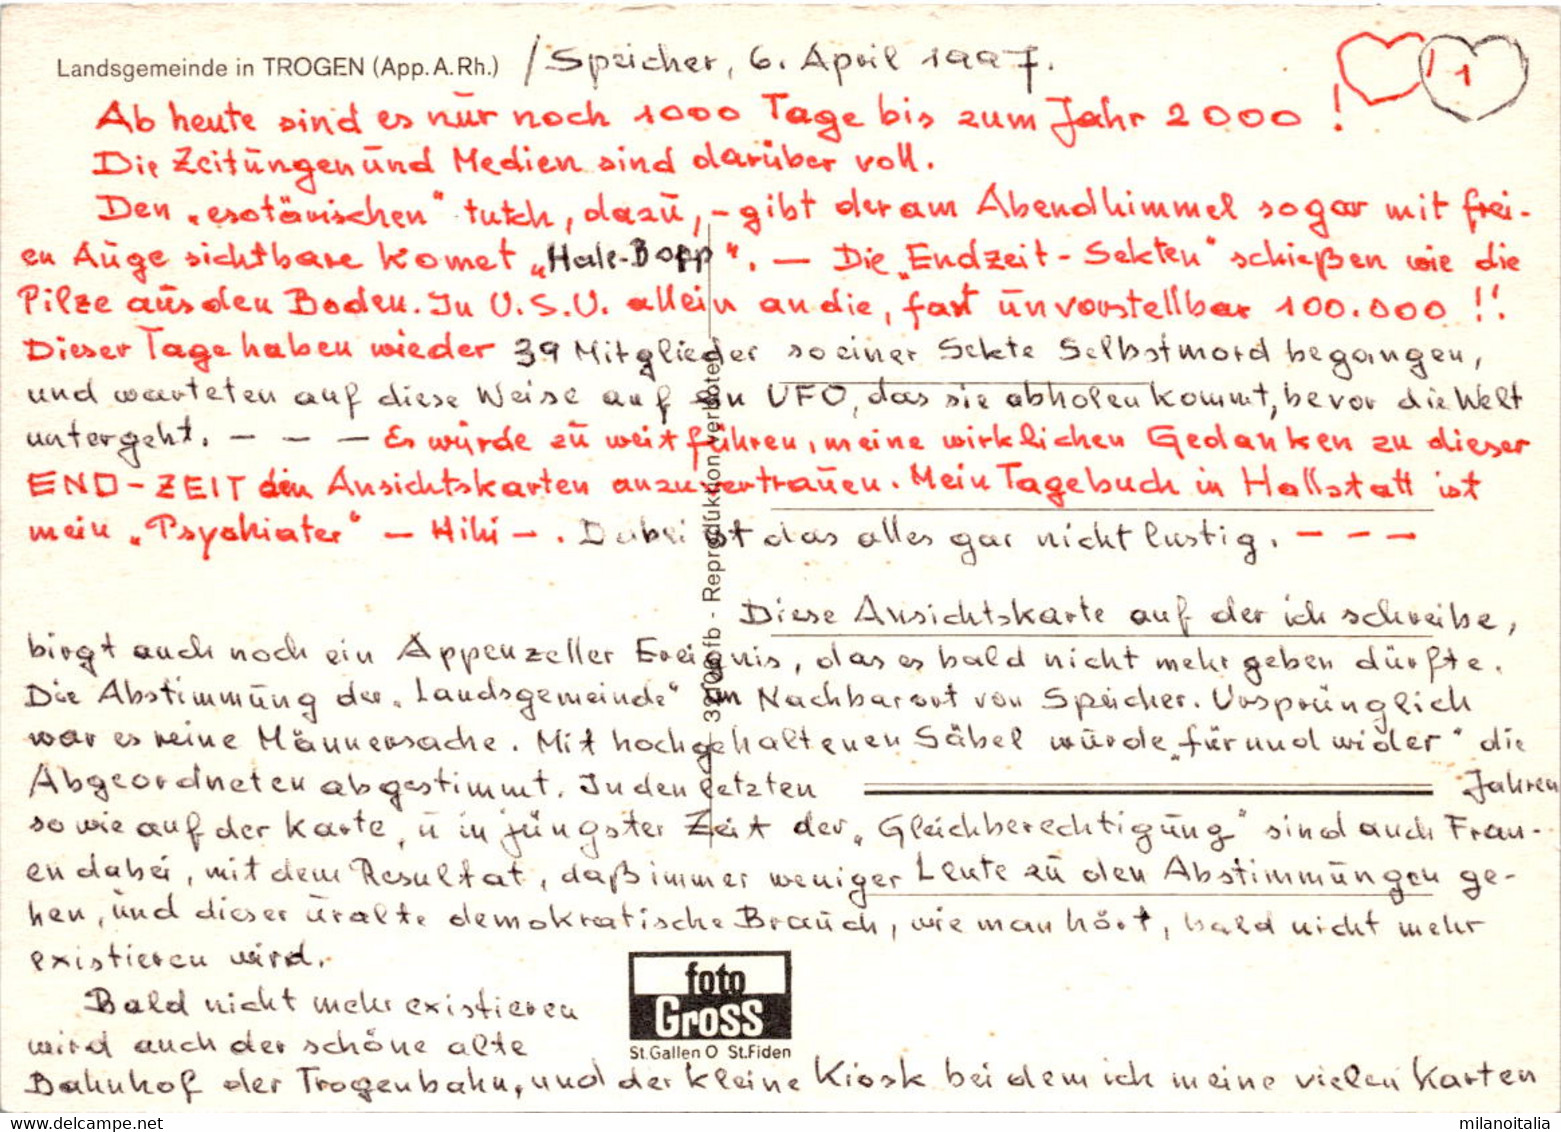 Landsgemeinde in TROGEN (App. A. Rh.) / Speicher, 6. April 1997.
1
Ab heute sind es nur noch 1000 Tage bis zum Jahr 2000!
Die Zeitungen und Medien sind darüber voll.
Den „esotärischen“ tutch, dazu, – gibt der am Abendhimmel sogar mit frei-
en Auge sichtbare Komet „Hale-Bopp“. – Die „Endzeit-Sekten“ schießen wie die
Pilze aus den Boden. In U.S.U. allein an die, fast unvorstellbar 100.000 !!
Dieser Tage haben wieder 39 Mitglieder so einer Sekte Selbstmord begangen,
und warteten auf diese Weise auf ein UFO, das sie abholen kommt, bevor die Welt
untergeht. – – – Es würde zu weit führen, meine wirklichen Gedanken zu dieser
END-ZEIT den Ansichtskarten anzuvertrauen. Mein Tagebuch in Hallstatt ist
mein „Psychiater“ – Hihi – . Dabei ist das alles gar nicht lustig. – – –
Diese Ansichtskarte auf der ich schreibe,
birgt auch noch ein Appenzeller Ereignis, das es bald nicht mehr geben dürfte.
Die Abstimmung der „Landsgemeinde“ im Nachbarort von Speicher. Ursprünglich
war es reine Männersache. Mit hochgehaltenen Säbel würde „für und wider“ die
Abgeordneten abgestimmt. In den letzten Jahren
so wie auf der Karte, u in jüngster Zeit der „Gleichberechtigung“ sind auch Frau-
en dabei, mit dem Resultat, daß immer weniger Leute zu den Abstimmungen ge-
hen, und dieser uralte demokratische Brauch, wie man hört, bald nicht mehr
existieren wird.
Bald nicht mehr existieren
wird auch der schöne alte
Bahnhof der Trogenbahn, und der kleine Kiosk bei dem ich meine vielen Karten
foto
Gross
St. Gallen O St. Fiden
Reproduktion verboten
milanoitalia